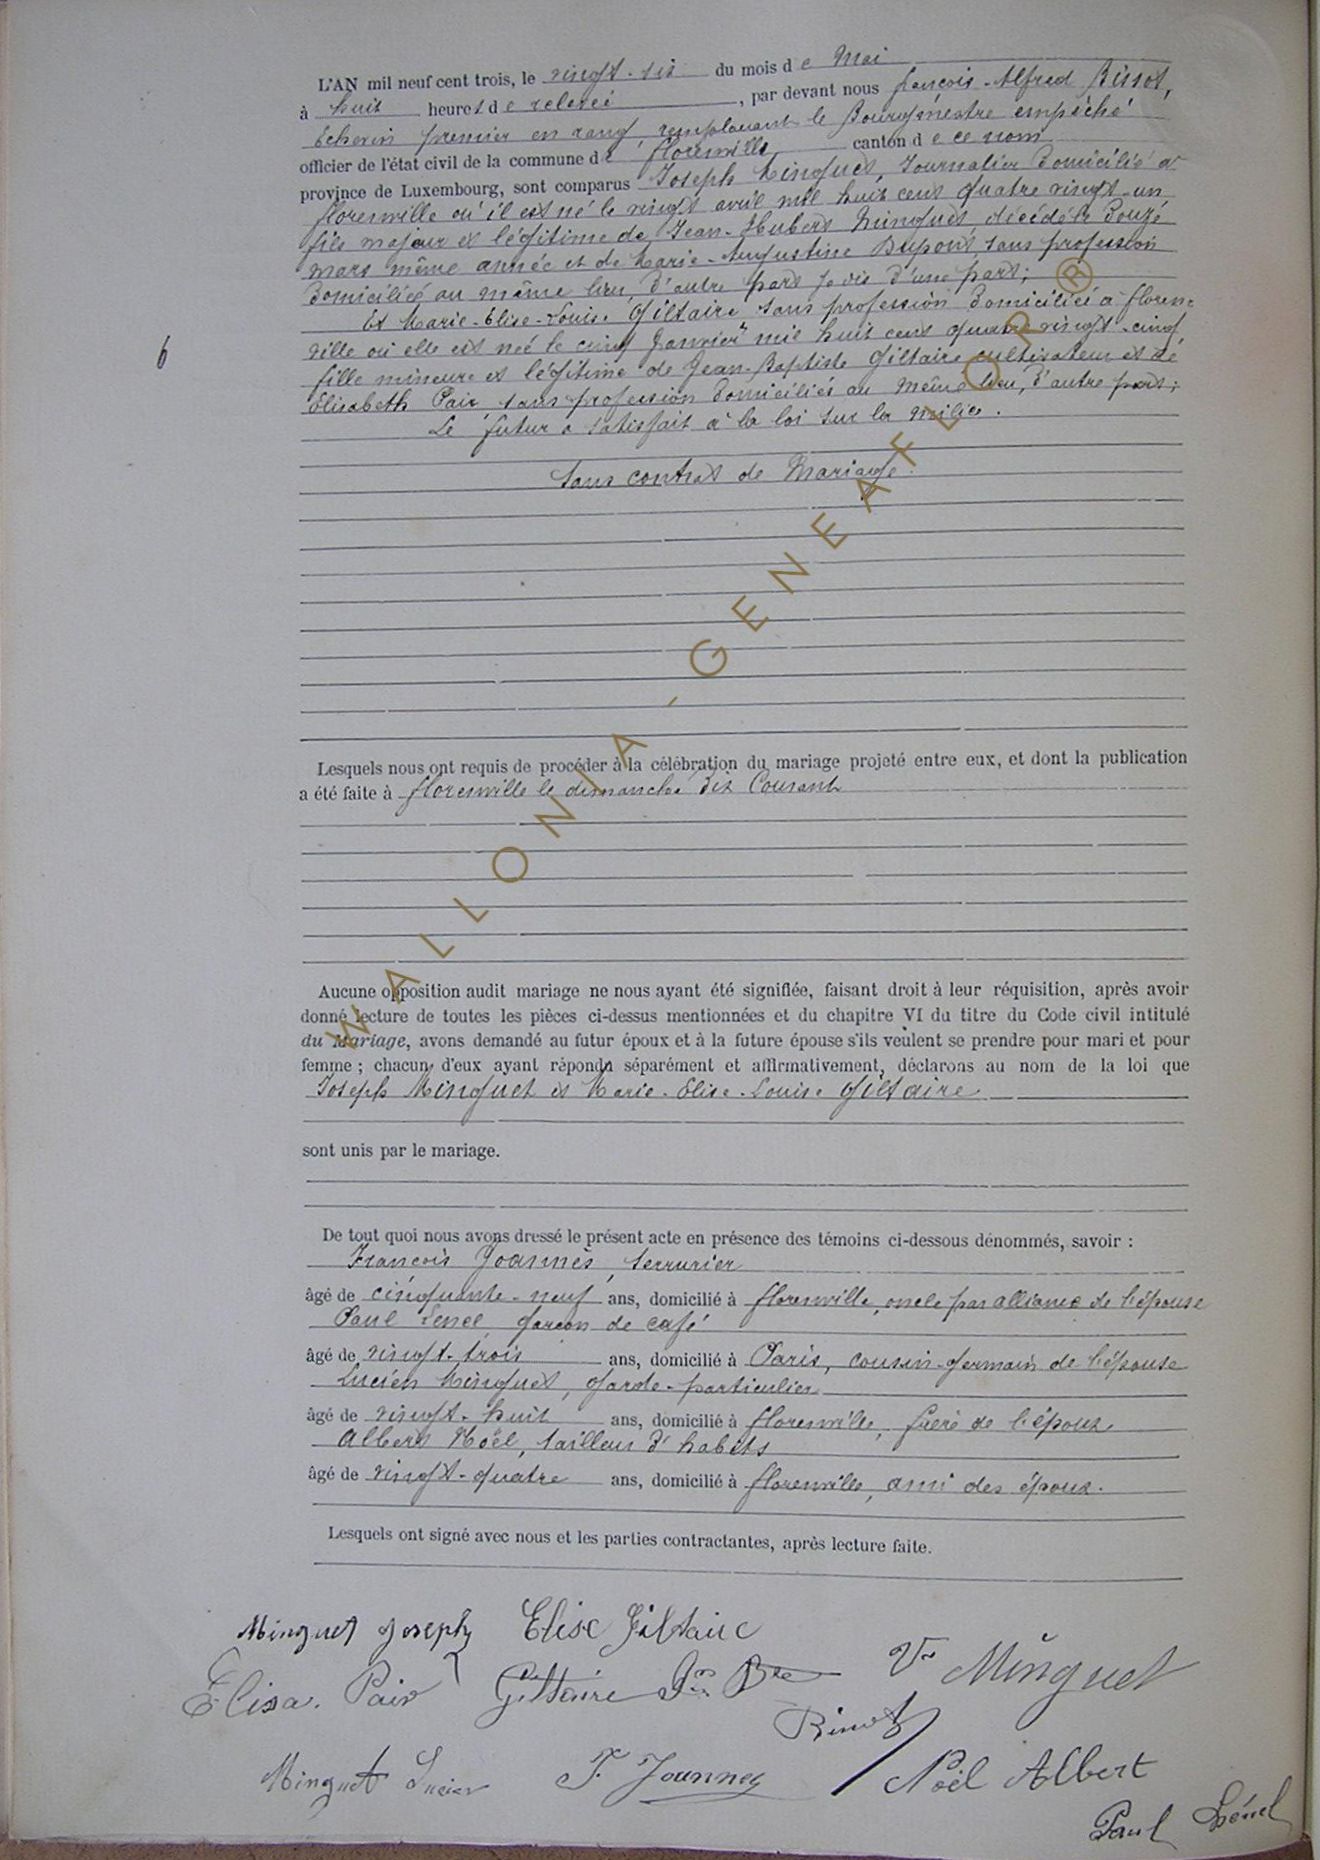 L'AN mil neuf cent trois, le vingt-six du mois de Mai
à huit heures de relevée, par devant nous françois-Alfred Binot,
Echevin premier en rang, remplaçant le Bourgmestre empêché
officier de l'état civil de la commune de florenville canton de ce nom
province de Luxembourg, sont comparus Joseph Minguet, Journalier domicilié à
florenville où il est né le vingt avril mil huit cent quatre vingt-un
fils majeur et légitime de Jean-Hubert Minguet décédé le douze
mars même année et de Marie-Augustine Dupont sans profession
domiciliée au même lieu, d'autre part d'une part;
Et Marie-Elise-Louise Giltaire sans profession domiciliée à floren
ville où elle est née le cinq Janvier mil huit cent quatre vingt-cinq
fille mineure et légitime de Jean-Baptiste Giltaire cultivateur et de
Elisabeth Paix sans profession domiciliés au même lieu, d'autre part;
Le futur a satisfait à la loi sur la milice.
Sans contrat de Mariage.
6
Lesquels nous ont requis de procéder à la célébration du mariage projeté entre eux, et dont la publication
a été faite à florenville le dimanche dix Courant
Aucune opposition audit mariage ne nous ayant été signifiée, faisant droit à leur réquisition, après avoir
donné lecture de toutes les pièces ci-dessus mentionnées et du chapitre VI du titre du Code civil intitulé
du Mariage, avons demandé au futur époux et à la future épouse s'ils veulent se prendre pour mari et pour
femme ; chacun d'eux ayant répondu séparément et affirmativement, déclarons au nom de la loi que
Joseph Minguet et Marie-Elise-Louise Giltaire
sont unis par le mariage.
De tout quoi nous avons dressé le présent acte en présence des témoins ci-dessous dénommés, savoir :
François Joannès, serrurier
âgé de cinquante-neuf ans, domicilié à florenville, oncle par alliance de l'épouse
Paul Lénel garçon de café
âgé de vingt-trois ans, domicilié à Paris, cousin-germain de l'épouse
Lucien Minguet, garde-particulier
âgé de vingt-huit ans, domicilié à florenville, frère de l'époux
Albert Noël, tailleur d'habits
âgé de vingt-quatre ans, domicilié à florenville, ami des époux.
Lesquels ont signé avec nous et les parties contractantes, après lecture faite.
Minguet Joseph Elise Giltaire
Elisa. Paix Giltaire Jn Bte Ve Minguet
Binot
Minguet Lucien F. Joannes Noël Albert
Paul Lénel
WALLONIA-GENEAFLOR ®